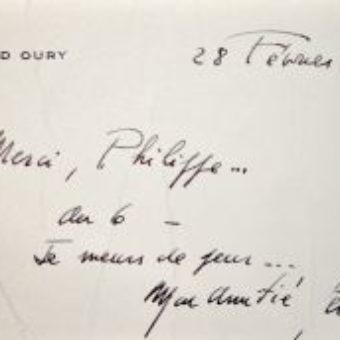 D OURY
28 Février
Merci, Philippe...
au 6 -
Je meurs de peur ...,
Mon amitié,